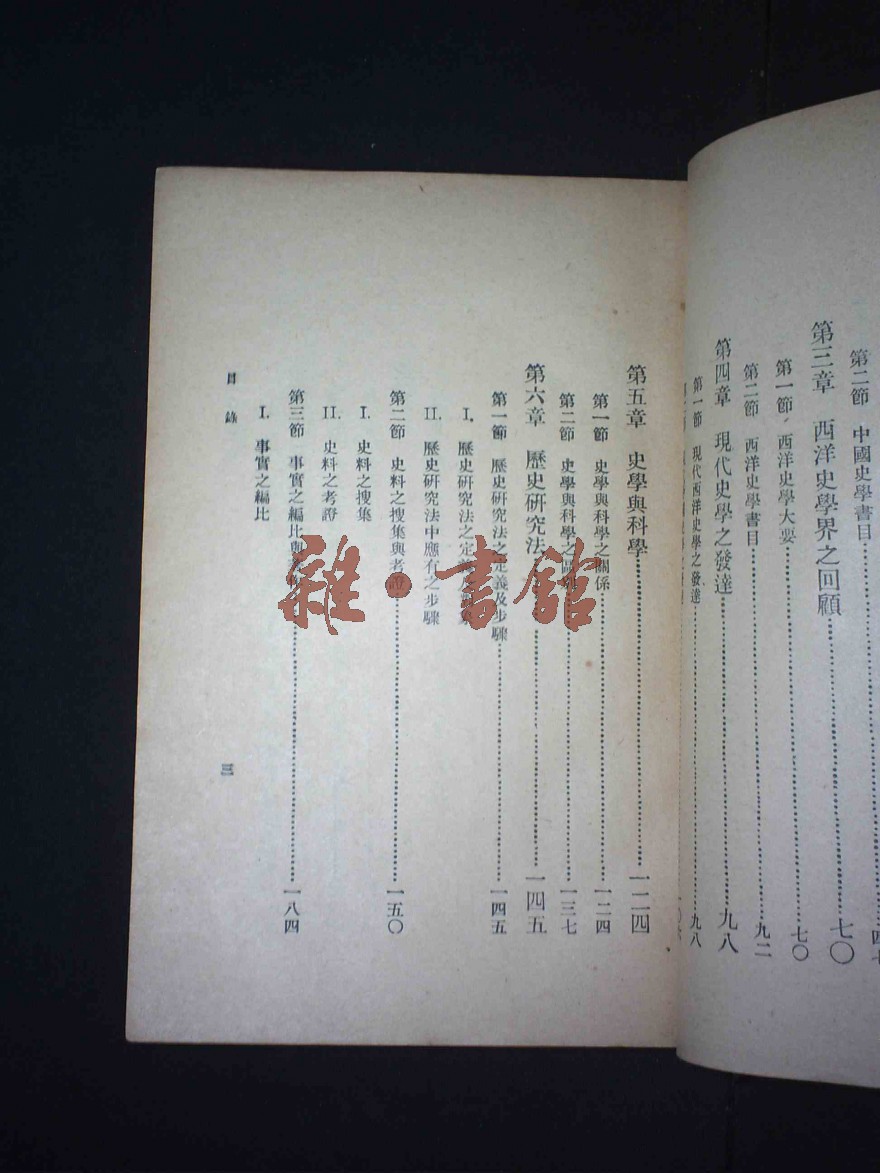 第二節 中國史學書目
第三章 西洋史學界之回顧 七〇
第一節 西洋史學大要 七〇
第二節 西洋史學書目 九二
第四章 現代史學之發達 九八
第一節 現代西洋史學之發達 九八
第五章 史學與科學 一二四
第一節 史學與科學之關係 一二四
第二節 史學與科學之 一三七
第六章 歷史研究法 一四五
第一節 歷史研究法之定義及步驟 一四五
I. 歷史研究法之定
II. 歷史研究法中應有之步驟
第二節 史料之搜集與考證 一五〇
I. 史料之搜集
II. 史料之考證
第三節 事實之編比與 一八四
I. 事實之編比
目錄
三
雜·書館